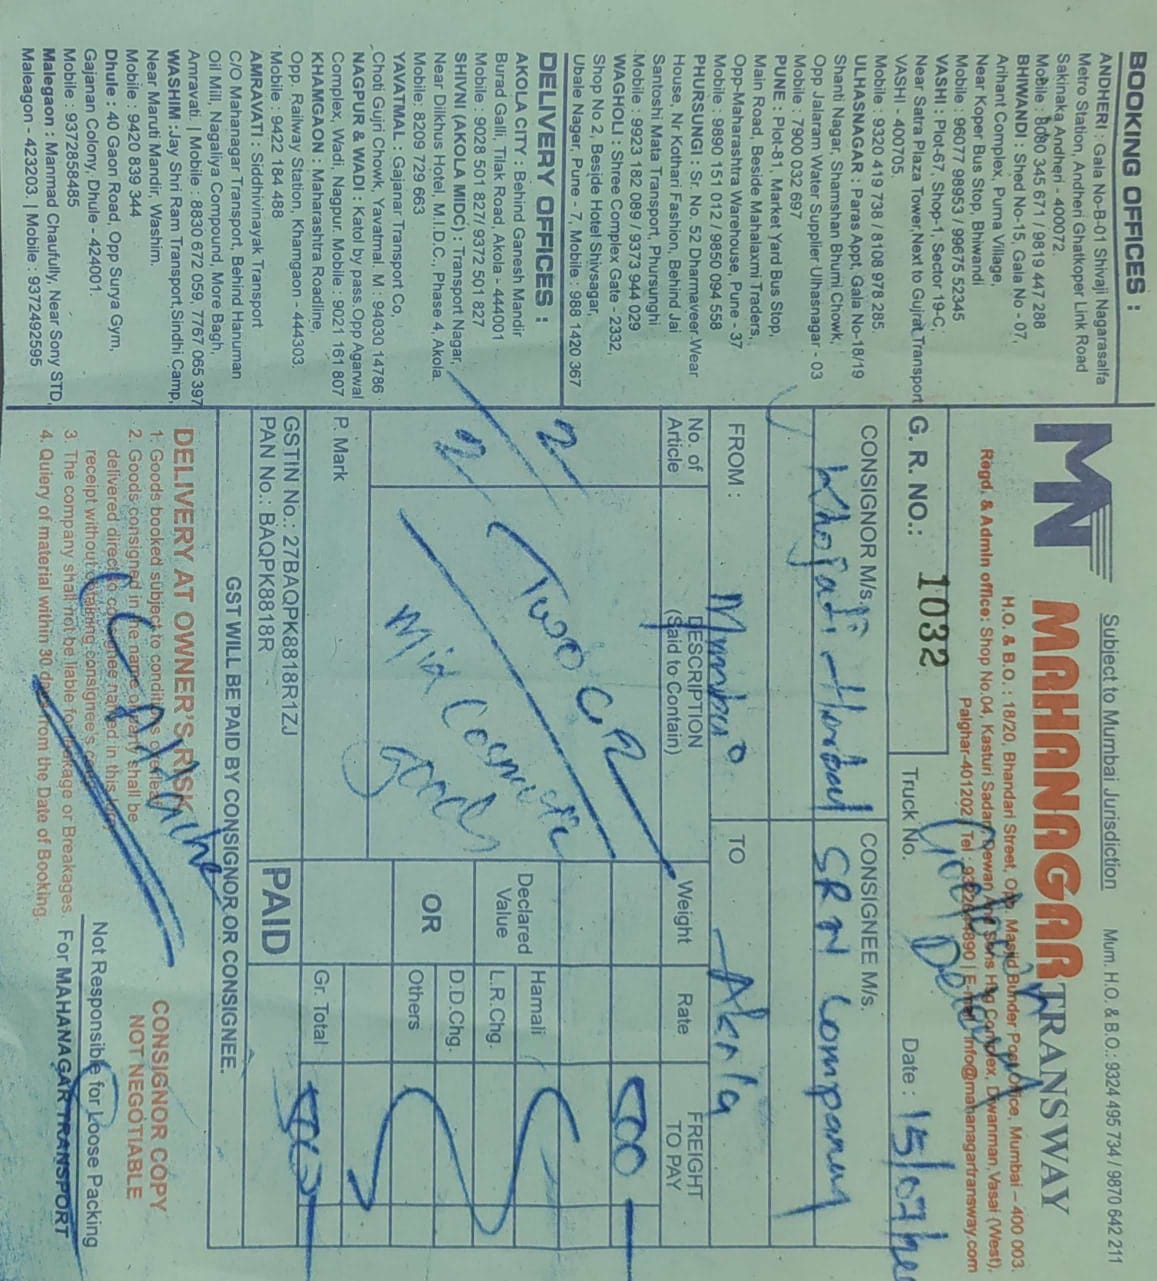 Subject to Mumbai Jurisdiction
Mum. H.O. & B.O.: 9324 495 734 / 9870 642 211
MN
MAHANAGAR TRANSWAY
H.O. & B.O. : 18/20, Bhandari Street, Opp. Masjid Bunder Post Office, Mumbai – 400 003.
Regd. & Admin office: Shop No.04, Kasturi Sadan, Dewan And Sons Hsg Complex, Diwanman, Vasai (West),
Palghar-401202 | Tel : | E-mail info@mahanagartransway.com
G. R. NO.: 1032
Truck No.
Godown
Delivery
Date : 15/07/
CONSIGNOR M/s.
CONSIGNEE M/s.
SRN Company
FROM : Mumbai
TO Akola
No. of Article
DESCRIPTION (Said to Contain)
Weight
Rate
FREIGHT TO PAY
2
(Two
500 —
Hamali
Declared Value
L.R.Chg.
2
Mix Cosmetic
Goods
D.D.Chg.
OR
Others
P. Mark
Gr. Total
500 —
GSTIN No.: 27BAQPK8818R1ZJ
PAN No.: BAQPK8818R
PAID
GST WILL BE PAID BY CONSIGNOR OR CONSIGNEE.
DELIVERY AT OWNER'S RISK
1. Goods booked subject to conditions overleaf
2. Goods consigned in the name of party shall be
delivered direct to consignee named in this
receipt without obtaining consignee's
3. The company shall not be liable for leakage or Breakages.
4. Quiery of material within 30 days from the Date of Booking.
CONSIGNOR COPY
NOT NEGOTIABLE
Not Responsible for Loose Packing
For MAHANAGAR TRANSPORT
BOOKING OFFICES :
ANDHERI : Gala No-B-01 Shivaji Nagarasalfa
Metro Station, Andheri Ghatkoper Link Road
Sakinaka Andheri - 400072.
Mobile : 8080 345 671 / 9819 447 288
BHIWANDI : Shed No-15, Gala No - 07,
Arihant Complex, Purna Village,
Near Koper Bus Stop, Bhiwandi
Mobile : 96077 98953 / 99675 52345
VASHI : Plot-67, Shop-1, Sector 19-C,
Near Satra Plaza Tower,Next to Gujrat Transport
VASHI - 400705.
Mobile : 9320 419 738 / 8108 978 285.
ULHASNAGAR : Paras Appt, Gala No-18/19
Shanti Nagar, Shamshan Bhumi Chowk,
Opp Jalaram Water Supplier Ulhasanagar - 03
Mobile : 7900 032 697
PUNE : Plot-81, Market Yard Bus Stop,
Main Road, Beside Mahalaxmi Traders,
Opp-Maharashtra Warehouse, Pune - 37
Mobile : 9890 151 012 / 9850 094 558
PHURSUNGI : Sr. No. 52 Dharmaveer Wear
House, Nr Kothari Fashion, Behind Jai
Santoshi Mata Transport, Phursunghi
Mobile : 9923 182 089 / 9373 944 029
WAGHOLI : Shree Complex Gate - 2332,
Shop No 2, Beside Hotel Shivsagar,
Ubale Nagar, Pune - 7, Mobile : 988 1420 367
DELIVERY OFFICES :
AKOLA CITY : Behind Ganesh Mandir
Burad Galli, Tilak Road, Akola - 444001
Mobile : 9028 501 827/ 9372 501 827
SHIVNI (AKOLA MIDC) : Transport Nagar,
Near Dilkhus Hotel, M.I.D.C, Phase 4, Akola.
Mobile: 8209 729 663
YAVATMAL : Gajanar Transport Co,
Choti Gujri Chowk, Yavatmal. M : 94030 14786
NAGPUR & WADI : Katol by pass,Opp Agarwal
Complex, Wadi, Nagpur. Mobile : 9021 161 807
KHAMGAON : Maharashtra Roadline,
Opp. Railway Station, Khamgaon - 444303.
Mobile : 9422 184 488
AMRAVATI : Siddhivinayak Transport
C/O Mahanagar Transport, Behind Hanuman
Oil Mill, Nagaliya Compound, More Bagh,
Amravati. | Mobile : 8830 672 059, 7767 065 397
WASHIM :Jay Shri Ram Transport,Sindhi Camp,
Near Maruti Mandir, Washim.
Mobile : 9420 839 344
Dhule : 40 Gaon Road, Opp Sunya Gym,
Gajanan Colony, Dhule - 424001.
Mobile : 9372858485
Malegaon : Manmad Chaufully, Near Sony STD,
Maleagon - 423203. | Mobile : 9372492595